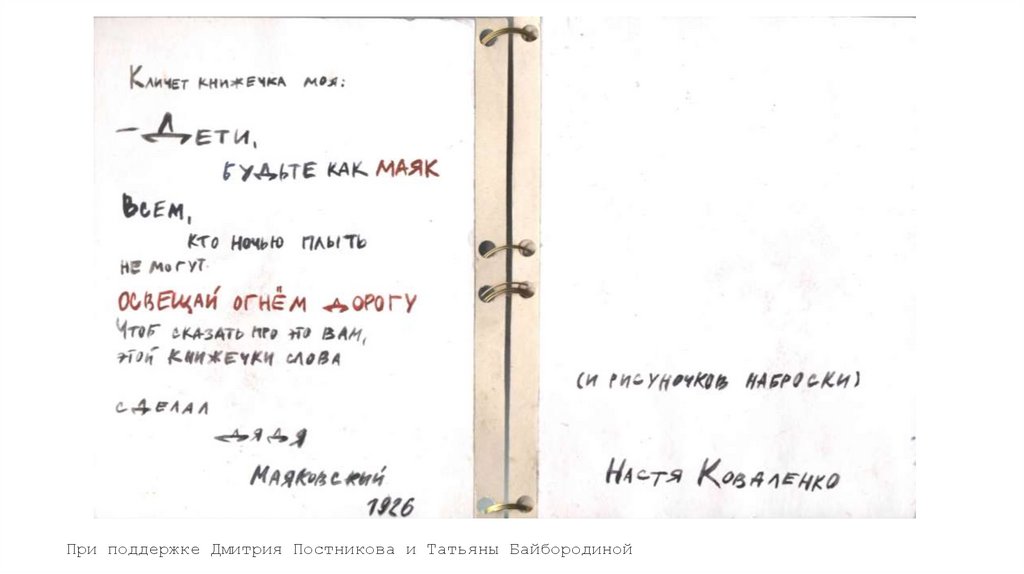 Кличет книжечка моя:
– Дети,
будьте как маяк
Всем,
кто ночью плыть
не могут.
освещай огнём дорогу
Чтоб сказать про это вам,
этой книжечки слова
сделал
дядя
Маяковский
1926
(и рисуночков наброски)
Настя Коваленко
При поддержке Дмитрия Постникова и Татьяны Байбородиной